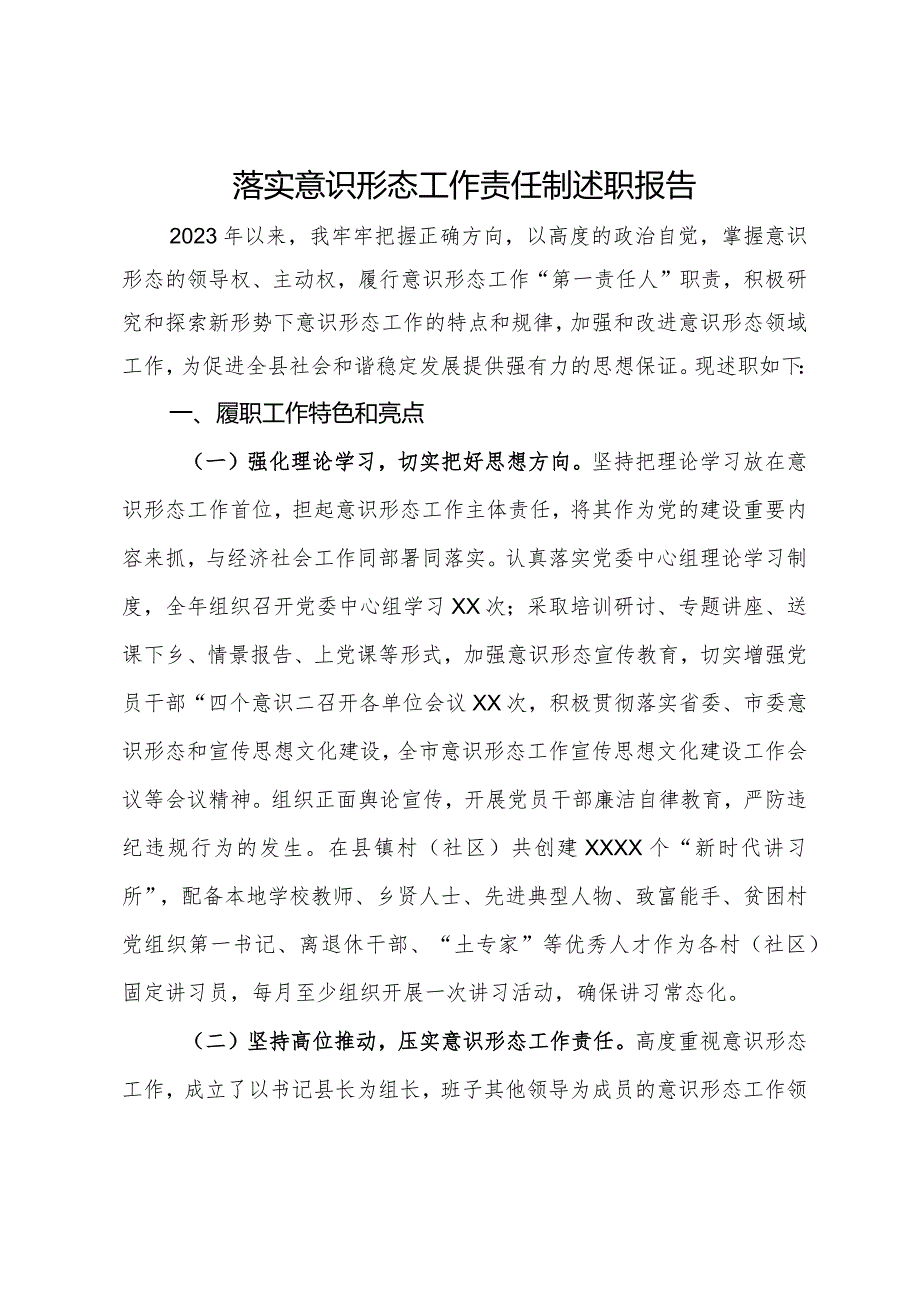 落实意识形态工作责任制述职报告
2023年以来，我牢牢把握正确方向，以高度的政治自觉，掌握意识
形态的领导权、主动权，履行意识形态工作“第一责任人”职责，积极研
究和探索新形势下意识形态工作的特点和规律，加强和改进意识形态领域
工作，为促进全县社会和谐稳定发展提供强有力的思想保证。现述职如下：
一、履职工作特色和亮点
（一）强化理论学习，切实把好思想方向。坚持把理论学习放在意
识形态工作首位，担起意识形态工作主体责任，将其作为党的建设重要内
容来抓，与经济社会工作同部署同落实。认真落实党委中心组理论学习制
度，全年组织召开党委中心组学习XX次；采取培训研讨、专题讲座、送
课下乡、情景报告、上党课等形式，加强意识形态宣传教育，切实增强党
员干部“四个意识二召开各单位会议XX次，积极贯彻落实省委、市委意
识形态和宣传思想文化建设，全市意识形态工作宣传思想文化建设工作会
议等会议精神。组织正面舆论宣传，开展党员干部廉洁自律教育，严防违
纪违规行为的发生。在县镇村（社区）共创建XXXX个“新时代讲习
所”，配备本地学校教师、乡贤人士、先进典型人物、致富能手、贫困村
党组织第一书记、离退休干部、“土专家”等优秀人才作为各村（社区）
固定讲习员，每月至少组织开展一次讲习活动，确保讲习常态化。
（二）坚持高位推动，压实意识形态工作责任。高度重视意识形态
工作，成立了以书记县长为组长，班子其他领导为成员的意识形态工作领